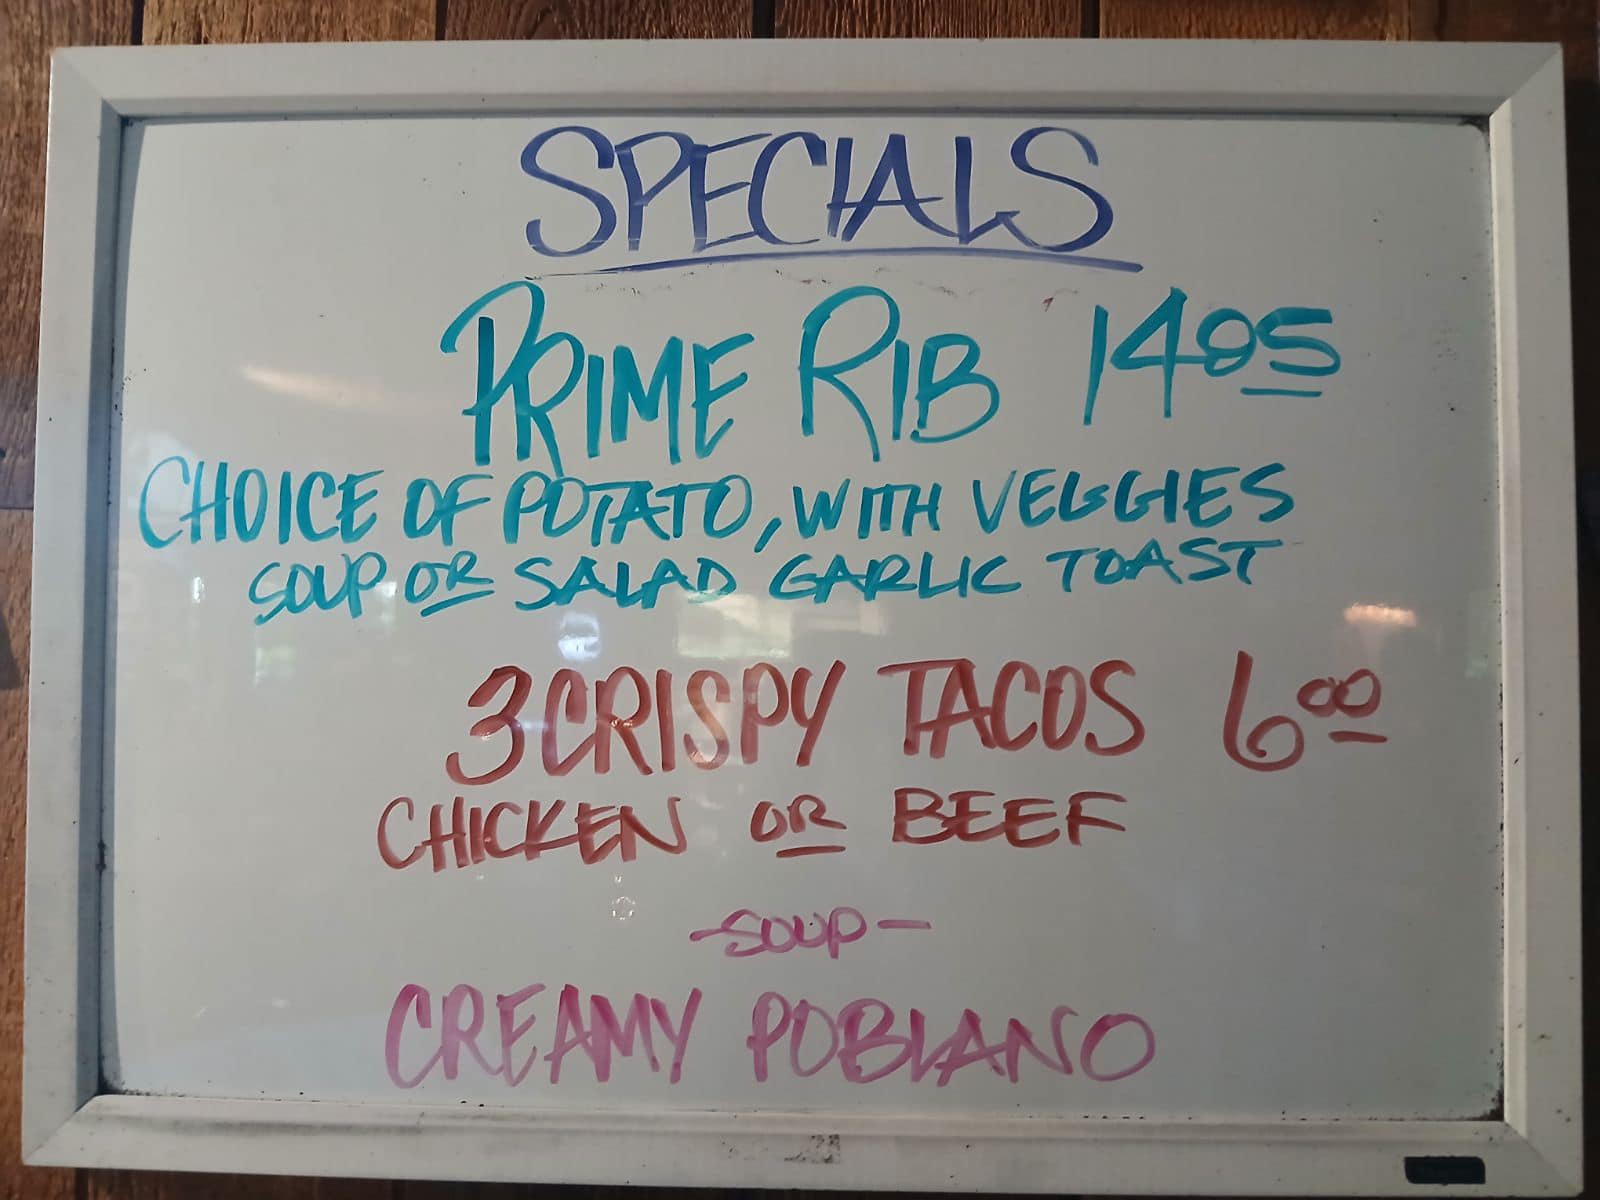 SPECIALS
PRIME RIB 14.95
CHOICE OF POTATO, WITH VEGGIES
SOUP OR SALAD GARLIC TOAST
3 CRISPY TACOS 6.00
CHICKEN OR BEEF
-SOUP-
CREAMY POBLANO